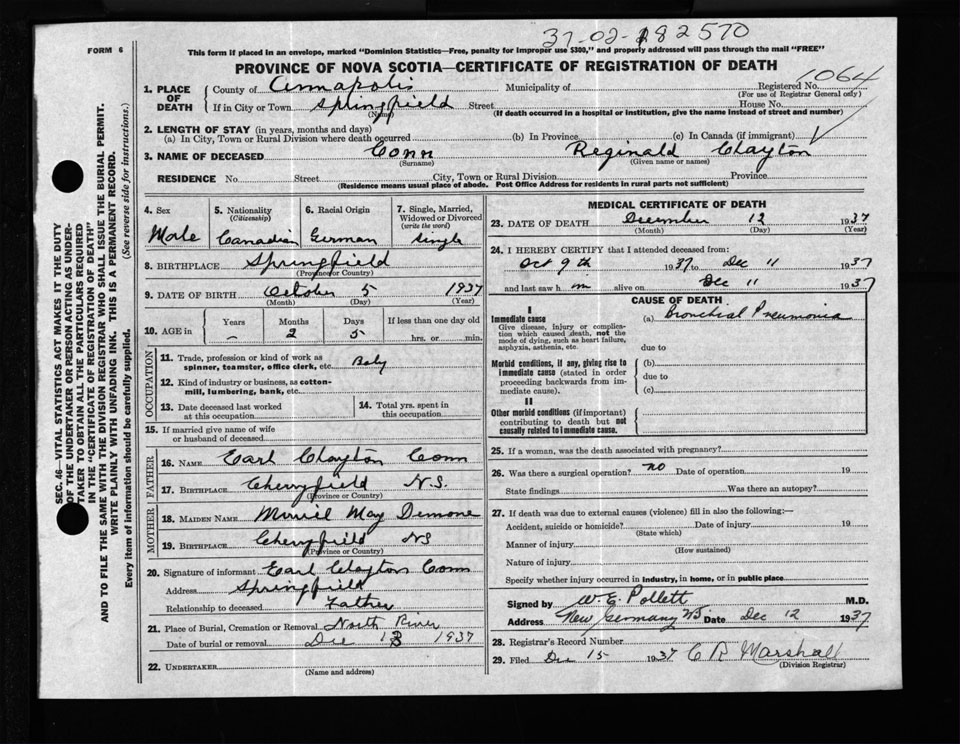 37-02-182570
FORM 6
This form if placed in an envelope, marked "Dominion Statistics—Free, penalty for improper use $300," and properly addressed will pass through the mail "FREE"
PROVINCE OF NOVA SCOTIA—CERTIFICATE OF REGISTRATION OF DEATH
1064
1. PLACE OF DEATH
County of Annapolis Municipality of Registered No.
(For use of Registrar General only)
If in City or Town Springfield Street House No.
(Name) (If death occurred in a hospital or institution, give the name instead of street and number)
2. LENGTH OF STAY (in years, months and days)
(a) In City, Town or Rural Division where death occurred (b) In Province (c) In Canada (if immigrant)
3. NAME OF DECEASED Conn Reginald Clayton
(Surname) (Given name or names)
RESIDENCE No. Street City, Town or Rural Division Province
(Residence means usual place of abode. Post Office Address for residents in rural parts not sufficient)
4. Sex 5. Nationality (Citizenship) 6. Racial Origin 7. Single, Married, Widowed or Divorced (write the word)
Male Canadian German Single
8. BIRTHPLACE Springfield
(Province or Country)
9. DATE OF BIRTH October 5 1937
(Month) (Day) (Year)
10. AGE in Years Months Days If less than one day old
– 2 5 hrs. or min.
OCCUPATION
11. Trade, profession or kind of work as spinner, teamster, office clerk, etc. Baby
12. Kind of industry or business, as cotton-mill, lumbering, bank, etc.
13. Date deceased last worked at this occupation
14. Total yrs. spent in this occupation
15. If married give name of wife or husband of deceased
FATHER
16. NAME Earl Clayton Conn
17. BIRTHPLACE Cherryfield N.S.
(Province or Country)
MOTHER
18. MAIDEN NAME Muriel May Demone
19. BIRTHPLACE Cherryfield NS
(Province or Country)
20. Signature of informant Earl Clayton Conn
Address Springfield
Relationship to deceased Father
21. Place of Burial, Cremation or Removal North River
Date of burial or removal Dec 13 1937
22. UNDERTAKER
(Name and address)
MEDICAL CERTIFICATE OF DEATH
23. DATE OF DEATH December 12 1937
(Month) (Day) (Year)
24. I HEREBY CERTIFY that I attended deceased from:
Oct 9th 1937 to Dec 11 1937
and last saw h m alive on Dec 11 1937
CAUSE OF DEATH
I
Immediate cause (a) Bronchial Pneumonia
Give disease, injury or complication which caused death, not the mode of dying, such as heart failure, asphyxia, asthenia, etc.
due to
Morbid conditions, if any, giving rise to immediate cause (stated in order proceeding backwards from immediate cause).
(b)
due to
(c)
II
Other morbid conditions (if important) contributing to death but not causally related to immediate cause.
25. If a woman, was the death associated with pregnancy?
26. Was there a surgical operation? no Date of operation 19
State findings Was there an autopsy?
27. If death was due to external causes (violence) fill in also the following:—
Accident, suicide or homicide? Date of injury 19
(State which)
Manner of injury
(How sustained)
Nature of injury
Specify whether injury occurred in industry, in home, or in public place
Signed by W. E. Pollett M.D.
Address New Germany NS Date Dec 12 1937
28. Registrar's Record Number
29. Filed Dec 15 1937 C R Marshall
(Division Registrar)
SEC. 46—VITAL STATISTICS ACT MAKES IT THE DUTY
OF THE UNDERTAKER OR PERSON ACTING AS UNDER-
TAKER TO OBTAIN ALL THE PARTICULARS REQUIRED
IN THE "CERTIFICATE OF REGISTRATION OF DEATH"
AND TO FILE THE SAME WITH THE DIVISION REGISTRAR WHO SHALL ISSUE THE BURIAL PERMIT.
WRITE PLAINLY WITH UNFADING INK. THIS IS A PERMANENT RECORD.
Every item of information should be carefully supplied. (See reverse side for instructions.)